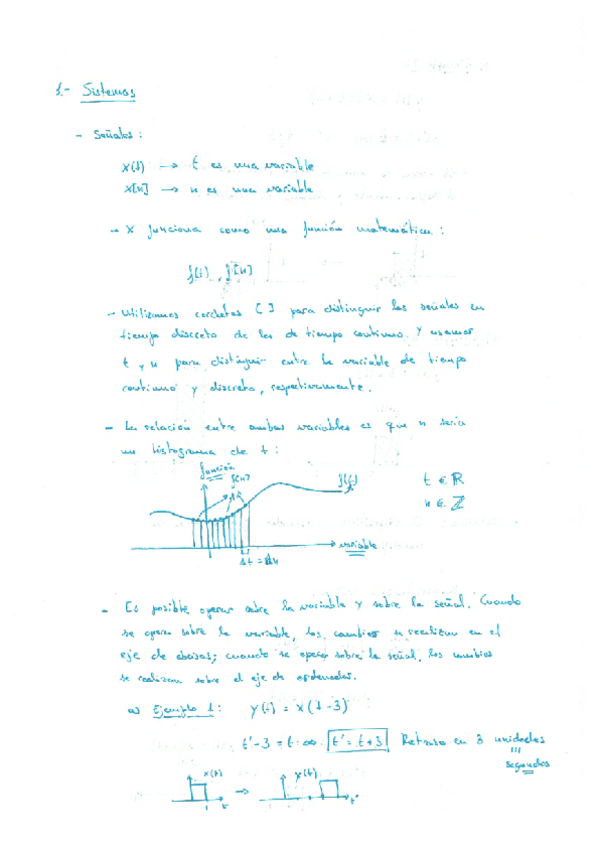 1.- Sistemas
- Señales:
x(t) → t es una variable
x[n] → n es una variable
- x funciona como una función matemática:
f(t), f[n]
- Utilizamos corchetes [ ] para distinguir las señales en
tiempo discreto de las de tiempo continuo, y usamos
t y n para distinguir entre la variable de tiempo
continuo y discreto, respectivamente.
- La relación entre ambas variables es que n sería
un histograma de t:
función
f[n]
f(t)
t ∈ ℝ
n ∈ ℤ
variable
Δt = Δn
- Es posible operar sobre la variable y sobre la señal. Cuando
se opera sobre la variable, los cambios se realizan en el
eje de abcisas; cuando se opera sobre la señal, los cambios
se realizan sobre el eje de ordenadas.
a) Ejemplo 1: y(t) = x(t-3)
t'-3 = t ∞ t' = t+3 Retraso en 3 unidades
segundos
x(t) → y(t)
t t'